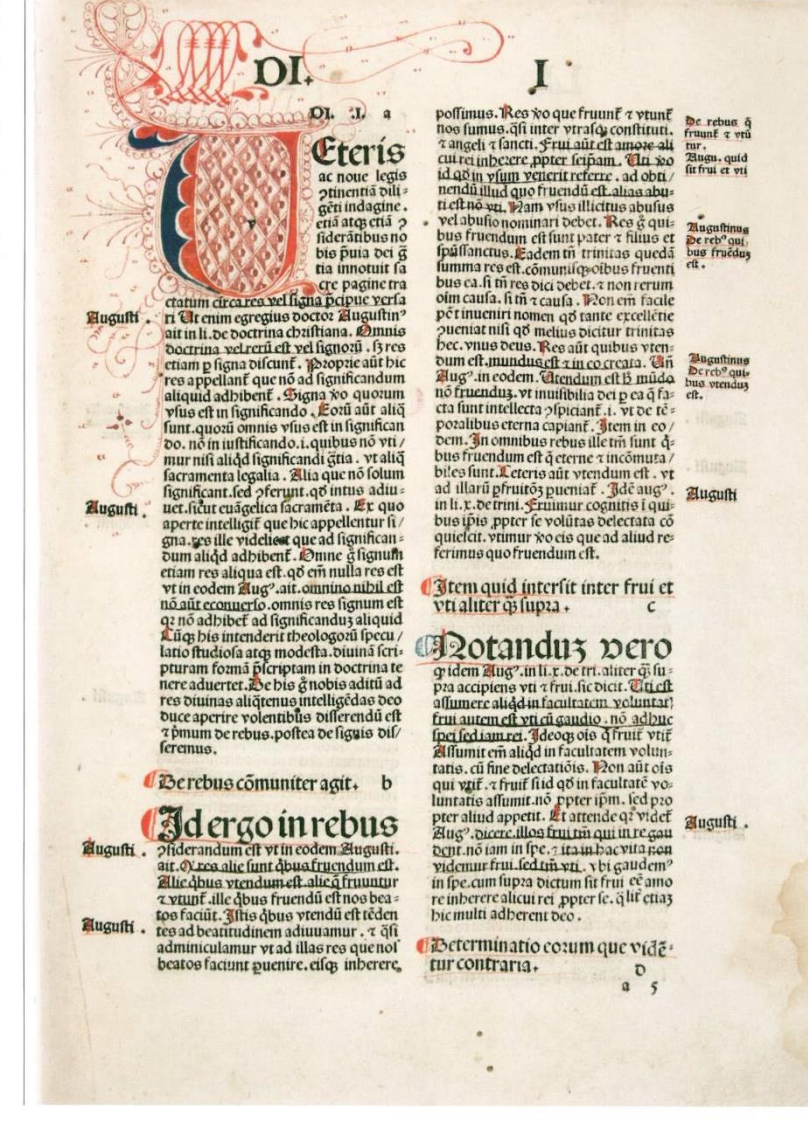 DI.
I
DI. .I. a
VEteris
ac noue legis
ꝯtinentiã dili⸗
gẽti indagine.
etiã atqꝫ etiã ꝯ
siderãtibus no
bis p̃uia dei g̃
tia innotuit sa
cre pagine tra
ctatum circa res vel signa p̃cipue versa
ri Ut enim egregius doctor Augustinꝰ
ait in li. de doctrina christiana. Omnis
doctrina vel rerũ est vel signorũ. sꝫ res
etiam ꝑ signa discunt̃. Proprie aũt hic
res appellant̃ que nõ ad significandum
aliquid adhibent̃. Signa ꝟo quorum
vsus est in significando. Eorũ aũt aliq̃
sunt. quorũ omnis vsus est in significan
do. nõ in iustificando. i. quibus nõ vti/
mur nisi aliqd̃ significandi g̃tia. vt aliq̃
sacramenta legalia. Alia que nõ solum
significant. sed ꝯferunt. qd̃ intus adiu⸗
uet. sicut euãgelica sacramẽta. Ex quo
aperte intelligit̃ que hic appellentur si/
gna. res ille videlicet que ad significan⸗
dum aliqd̃ adhibent̃. Omne g̃ signum
etiam res aliqua est. qd̃ em̃ nulla res est
vt in eodem Augꝰ. ait. omnino nihil est
nõ aũt econuerso. omnis res signum est
qꝛ nõ adhibet̃ ad significanduꝫ aliquid
Cũqꝫ his intenderit theologorũ specu/
latio studiosa atqꝫ modesta. diuinã scri⸗
pturam formã p̃scriptam in doctrina te
nere aduertet. De his g̃ nobis aditũ ad
res diuinas aliq̃tenus intelligẽdas deo
duce aperire volentibus disserendũ est
⁊ p̃mum de rebus. postea de signis dis/
seremus.
De rebus cõmuniter agit. b
Id ergo in rebus
ꝯsiderandum est vt in eodem Augusti.
ait. Q res alie sunt q̃bus fruendum est.
Alie q̃bus vtendum est. alie q̃ fruuntur
⁊ vtunt̃. ille q̃bus fruendũ est nos bea⸗
tos faciũt. Istis q̃bus vtendũ est tẽden
tes ad beatitudinem adiuuamur. ⁊ q̃si
adminiculamur vt ad illas res que nos
beatos faciunt ꝑuenire. eisqꝫ inherere
Augusti.
Augusti.
Augusti.
Augusti.
possimus. Res ꝟo que fruunt̃ ⁊ vtunt̃
nos sumus. q̃si inter vtrasqꝫ constituti.
⁊ angeli ⁊ sancti. Frui aũt est amore ali
cui rei inherere ꝓpter seip̃am. Uti ꝟo
id qd̃ in vsum venerit referre. ad obti/
nendũ illud quo fruendũ est. alias abu⸗
ti est nõ vti. Nam vsus illicitus abusus
vel abusio nominari debet. Res g̃ qui⸗
bus fruendum est sunt pater ⁊ filius et
sp̃ussanctus. Eadem tñ trinitas quedã
summa res est. cõmunisqꝫ oĩbus fruenti
bus ea. si tñ res dici debet. ⁊ non rerum
oĩm causa. si tñ ⁊ causa. Non em̃ facile
põt inueniri nomen qd̃ tante excellẽtie
ꝯueniat nisi qd̃ melius dicitur trinitas
hec. vnus deus. Res aũt quibus vten⸗
dum est. mundus est ⁊ in eo creata. Uñ
Augꝰ. in eodem. Utendum est h̃ mũdo
nõ fruenduꝫ. vt inuisibilia dei ꝑ ea q̃ fa⸗
cta sunt intellecta ꝯspiciant̃. i. vt de tẽ⸗
poralibus eterna capiant̃. Item in eo/
dem. In omnibus rebus ille tm̃ sunt q̃⸗
bus fruendum est q̃ eterne ⁊ incõmuta/
biles sunt. Ceteris aũt vtendum est. vt
ad illarũ ꝑfruitõꝫ ꝑueniat̃. Idẽ augꝰ.
in li. x. de trini. Fruimur cognitis ĩ qui⸗
bus ip̃is ꝓpter se volũtas delectata cõ
quiescit. vtimur ꝟo eis que ad aliud re⸗
ferimus quo fruendum est.
Item quid intersit inter frui et
vti aliter q̃ꝫ supra. c
Notanduꝫ vero
ꝙ idem Augꝰ. in li. x. de tri. aliter q̃ꝫ su⸗
pra accipiens vti ⁊ frui. sic dicit. Uti est
assumere aliqd̃ in facultatem voluntat̃
frui autem est vti cũ gaudio. nõ adhuc
spei sed iam rei. Ideoqꝫ oĩs q̃ fruit̃ vtit̃
Assumit em̃ aliqd̃ in facultatem volun⸗
tatis. cũ fine delectatiõis. Non aũt oĩs
qui vtit̃. ⁊ fruit̃ si id qd̃ in facultatẽ vo⸗
luntatis assumit. nõ ꝓpter ip̃m. sed pro
pter aliud appetit. Et attende qꝛ videt̃
Augꝰ. dicere. illos frui tm̃ qui in re gau
dent. nõ iam in spe. ⁊ ita in hac vita non
videmur frui. sed tm̃ vti. vbi gaudemꝰ
in spe. cum supra dictum sit frui eẽ amo
re inherere alicui rei ꝓpter se. q̃lit̃ etiaꝫ
hic multi adherent deo.
Determinatio eorum que vidẽ⸗
tur contraria. D
a 5
De rebus q̃
fruunt̃ ⁊ vtũ
tur.
Augu. quid
sit frui et vti
Augustinus
De rebꝰ qui⸗
bus fruẽduꝫ
est.
Augustinus
De rebꝰ qui⸗
bus vtenduꝫ
est.
Augusti
Augusti.